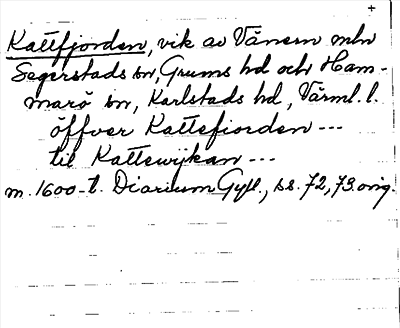 +
Kattfjorden, vik av Vänern mln
Segerstads sn, Grums hd och Ham-
marö sn, Karlstads hd, Värml. l.
öffver Kattefiorden ---
til Kattewijkan ---
m. 1600-t. Diarium Gyll., ss. 72, 73. orig.